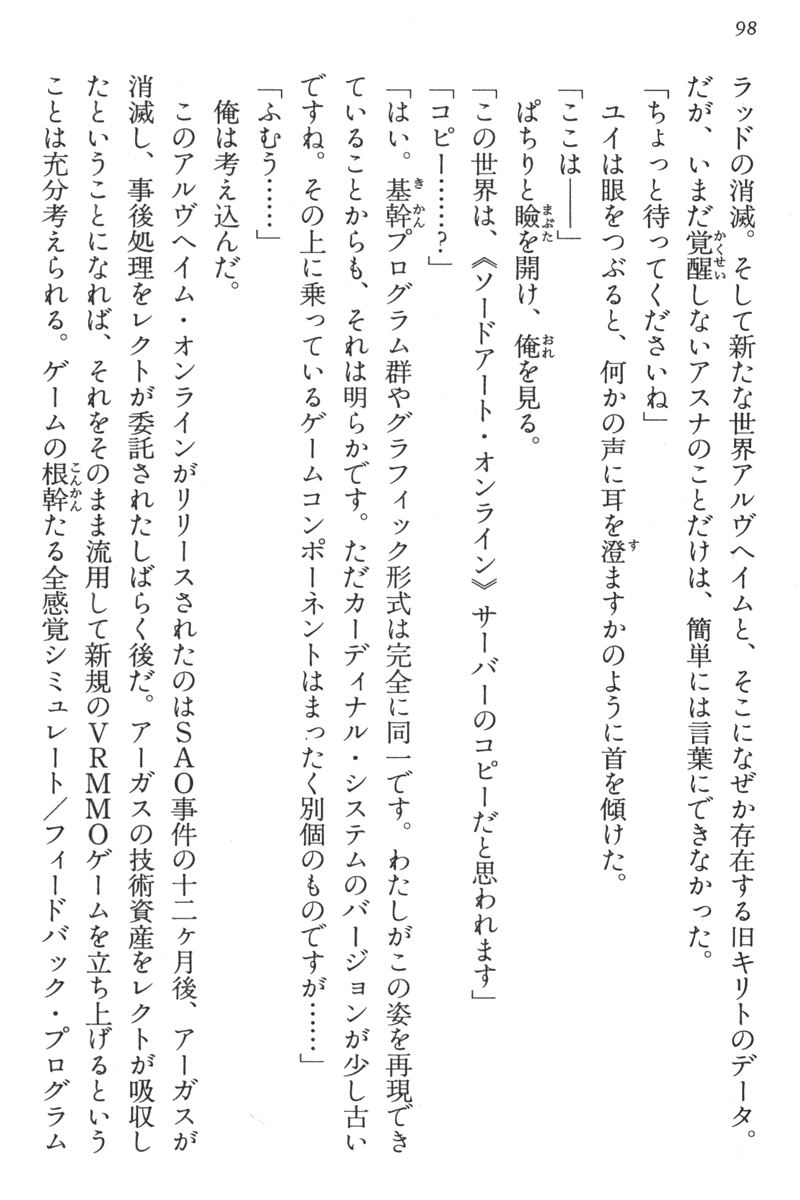 98
ラッドの消滅。そして新たな世界アルヴヘイムと、そこになぜか存在する旧キリトのデータ。
だが、いまだ覚醒しないアスナのことだけは、簡単には言葉にできなかった。
「ちょっと待ってくださいね」
ユイは眼をつぶると、何かの声に耳を澄ますかのように首を傾けた。
「ここは――」
ぱちりと瞼を開け、俺を見る。
「この世界は、《ソードアート・オンライン》サーバーのコピーだと思われます」
「コピー……？」
「はい。基幹プログラム群やグラフィック形式は完全に同一です。わたしがこの姿を再現でき
ていることからも、それは明らかです。ただカーディナル・システムのバージョンが少し古い
ですね。その上に乗っているゲームコンポーネントはまったく別個のものですが……」
「ふむう……」
俺は考え込んだ。
このアルヴヘイム・オンラインがリリースされたのはＳＡＯ事件の十二ヶ月後、アーガスが
消滅し、事後処理をレクトが委託されたしばらく後だ。アーガスの技術資産をレクトが吸収し
たということになれば、それをそのまま流用して新規のＶＲＭＭＯゲームを立ち上げるという
ことは充分考えられる。ゲームの根幹たる全感覚シミュレート／フィードバック・プログラム